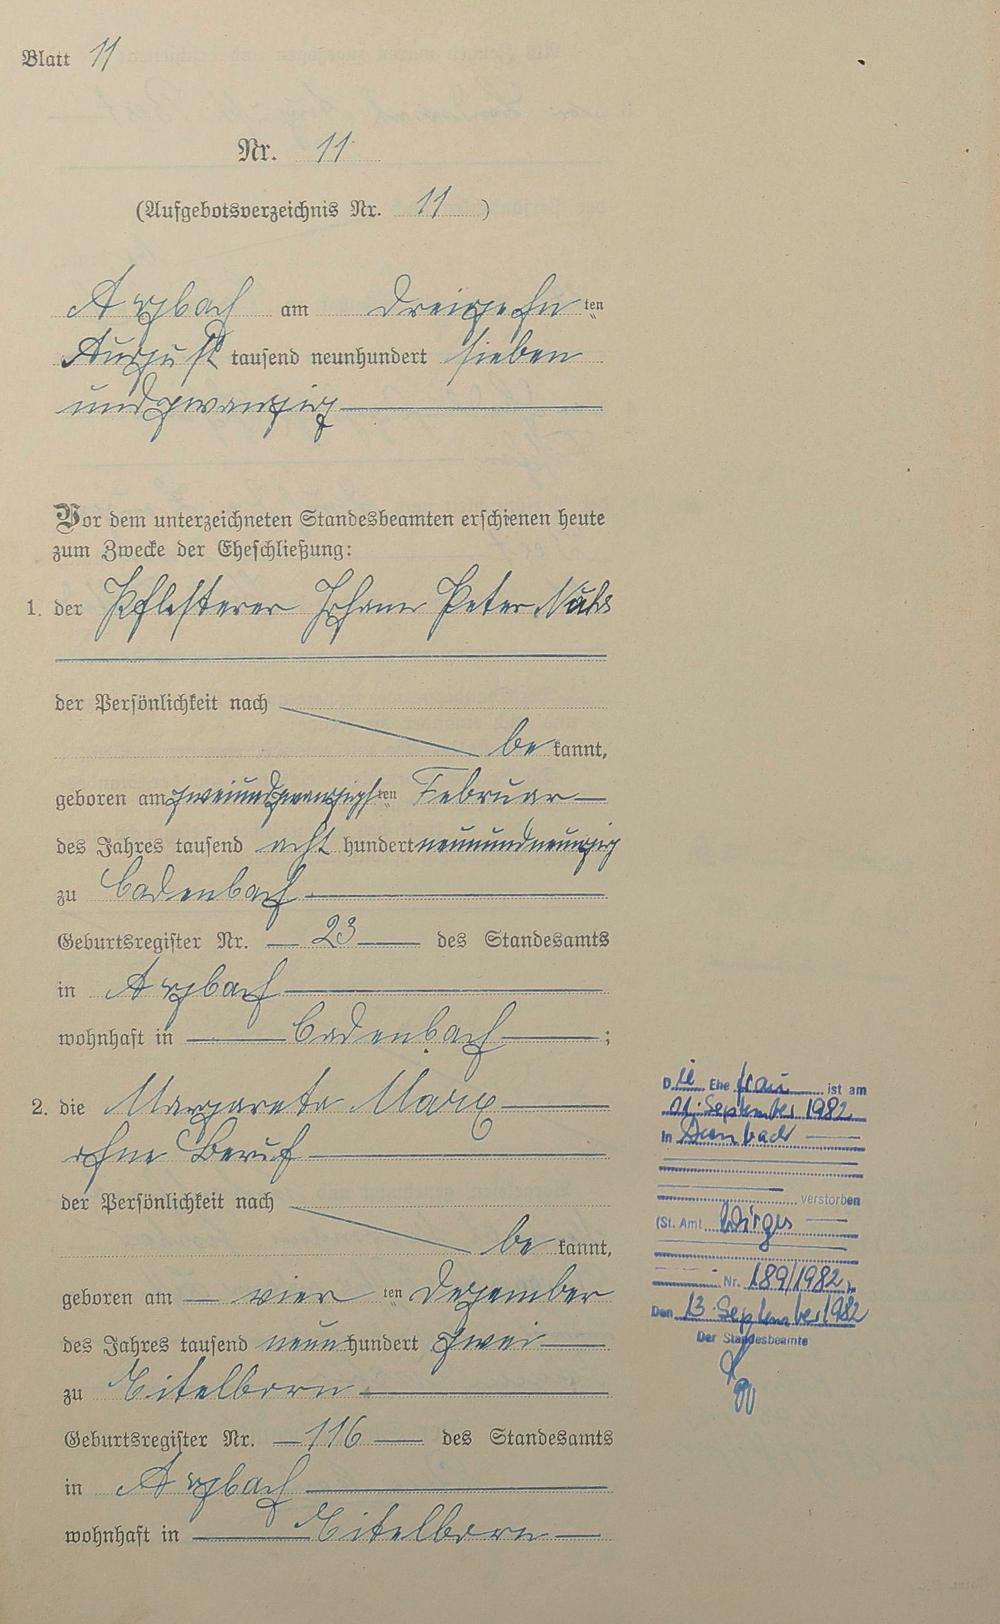 Blatt 11
Nr. 11
(Aufgebotsverzeichnis Nr. 11 )
Arzbach am dreizehn ten
August tausend neunhundert sieben
undzwanzig
Vor dem unterzeichneten Standesbeamten erschienen heute
zum Zwecke der Eheschließung:
1. der Pflasterer Johann Peter
der Persönlichkeit nach
be kannt,
geboren am zweiundzwanzigsten Februar
des Jahres tausend acht hundert neunundneunzig
zu Cadenbach
Geburtsregister Nr. 23 des Standesamts
in Arzbach
wohnhaft in Cadenbach ;
2. die Margareta Marx
ohne Beruf
der Persönlichkeit nach
be kannt,
geboren am vier ten Dezember
des Jahres tausend neun hundert zwei
zu Eitelborn
Geburtsregister Nr. 116 des Standesamts
in Arzbach
wohnhaft in Eitelborn
Die Ehefrau ist am
01. September 1982
in
verstorben
(St. Amt Wirges
Nr. 189/1982).
Den 13. September 1982
Der Standesbeamte